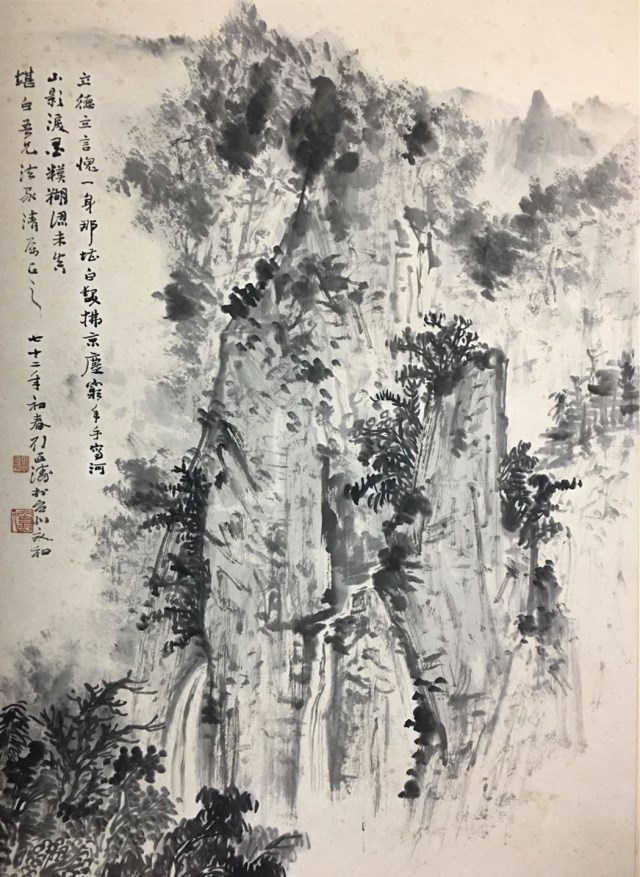 立德立言愧一身那堪白髮拂京塵窮年手寫河
山影淚墨糢糊認未真
堪白吾兄法家清屬正之 七十二年初春 於台北永和